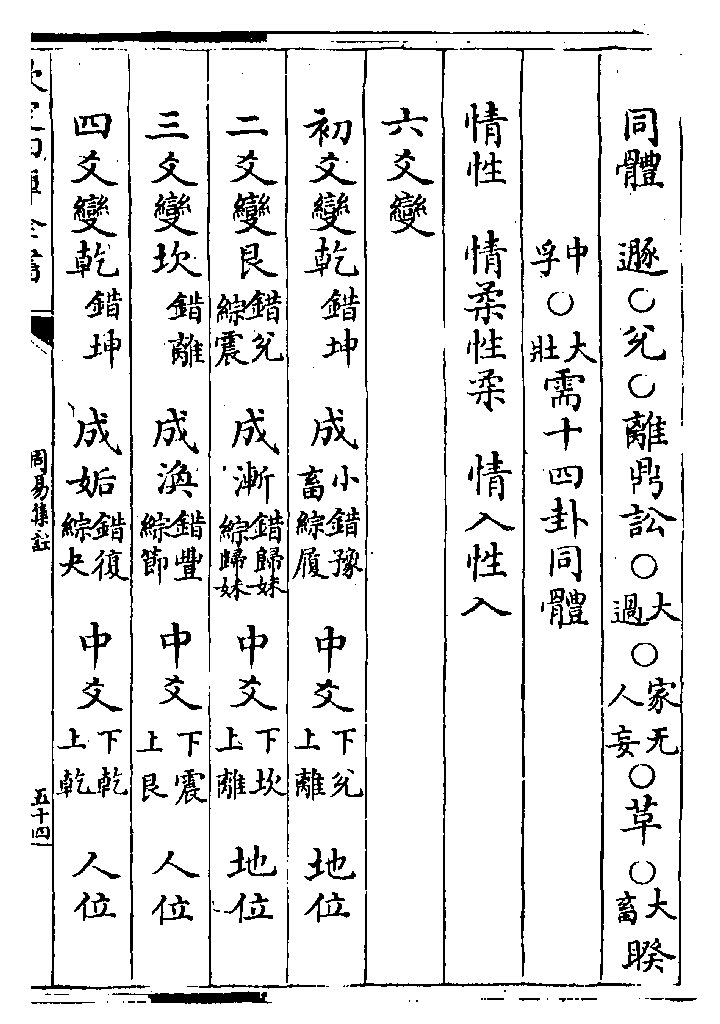 同體　遯○兌○離鼎訟○大過○家人无妄○草○大畜睽
中孚○大壯需十四卦同體
情性　情柔性柔　情入性入
六爻變
初爻變乾錯坤　成小畜錯豫綜履　中爻下兌上離　地位
二爻變艮錯兌綜震　成漸錯歸妹綜歸妹　中爻下坎上離　地位
三爻變坎錯離　成渙錯豐綜節　中爻下震上艮　人位
四爻變乾錯坤　成姤錯復綜夬　中爻下乾上乾　人位
周易集註
五十四